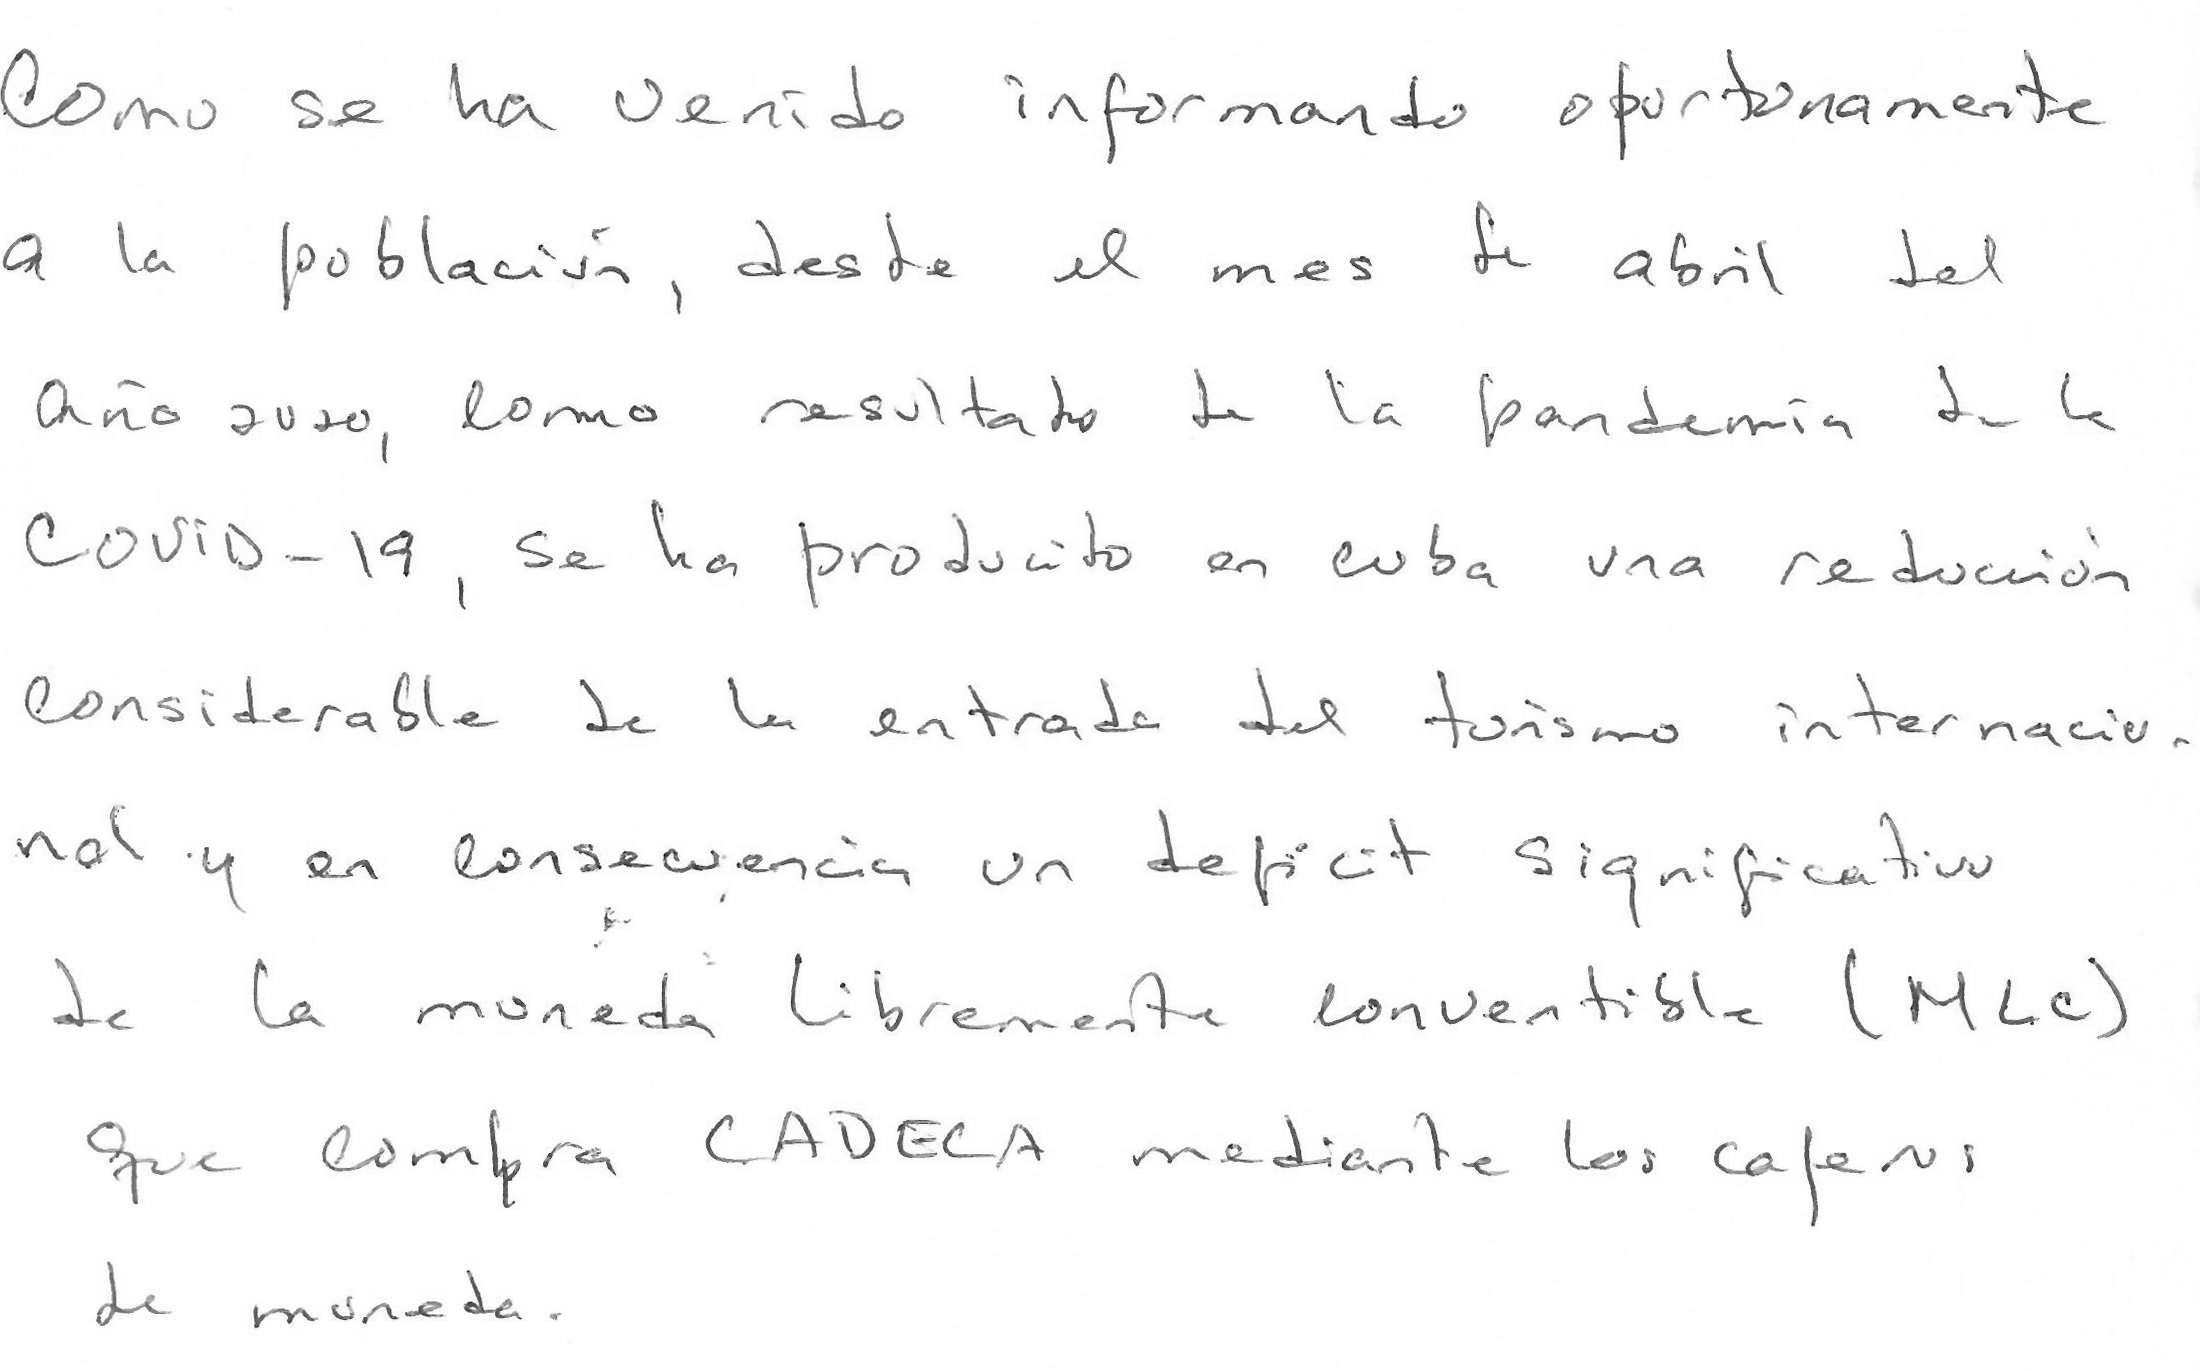 Como se ha venido informando oportunamente
a la población, desde el mes de abril del
año 2020, como resultado de la pandemia de la
COVID-19, se ha producido en cuba una reducción
considerable de la entrada del turismo internacio-
nal y en consecuencia un deficit significativo
de la moneda libremente conventible (MLC)
que compra CADECA mediante los cajeros
de moneda.